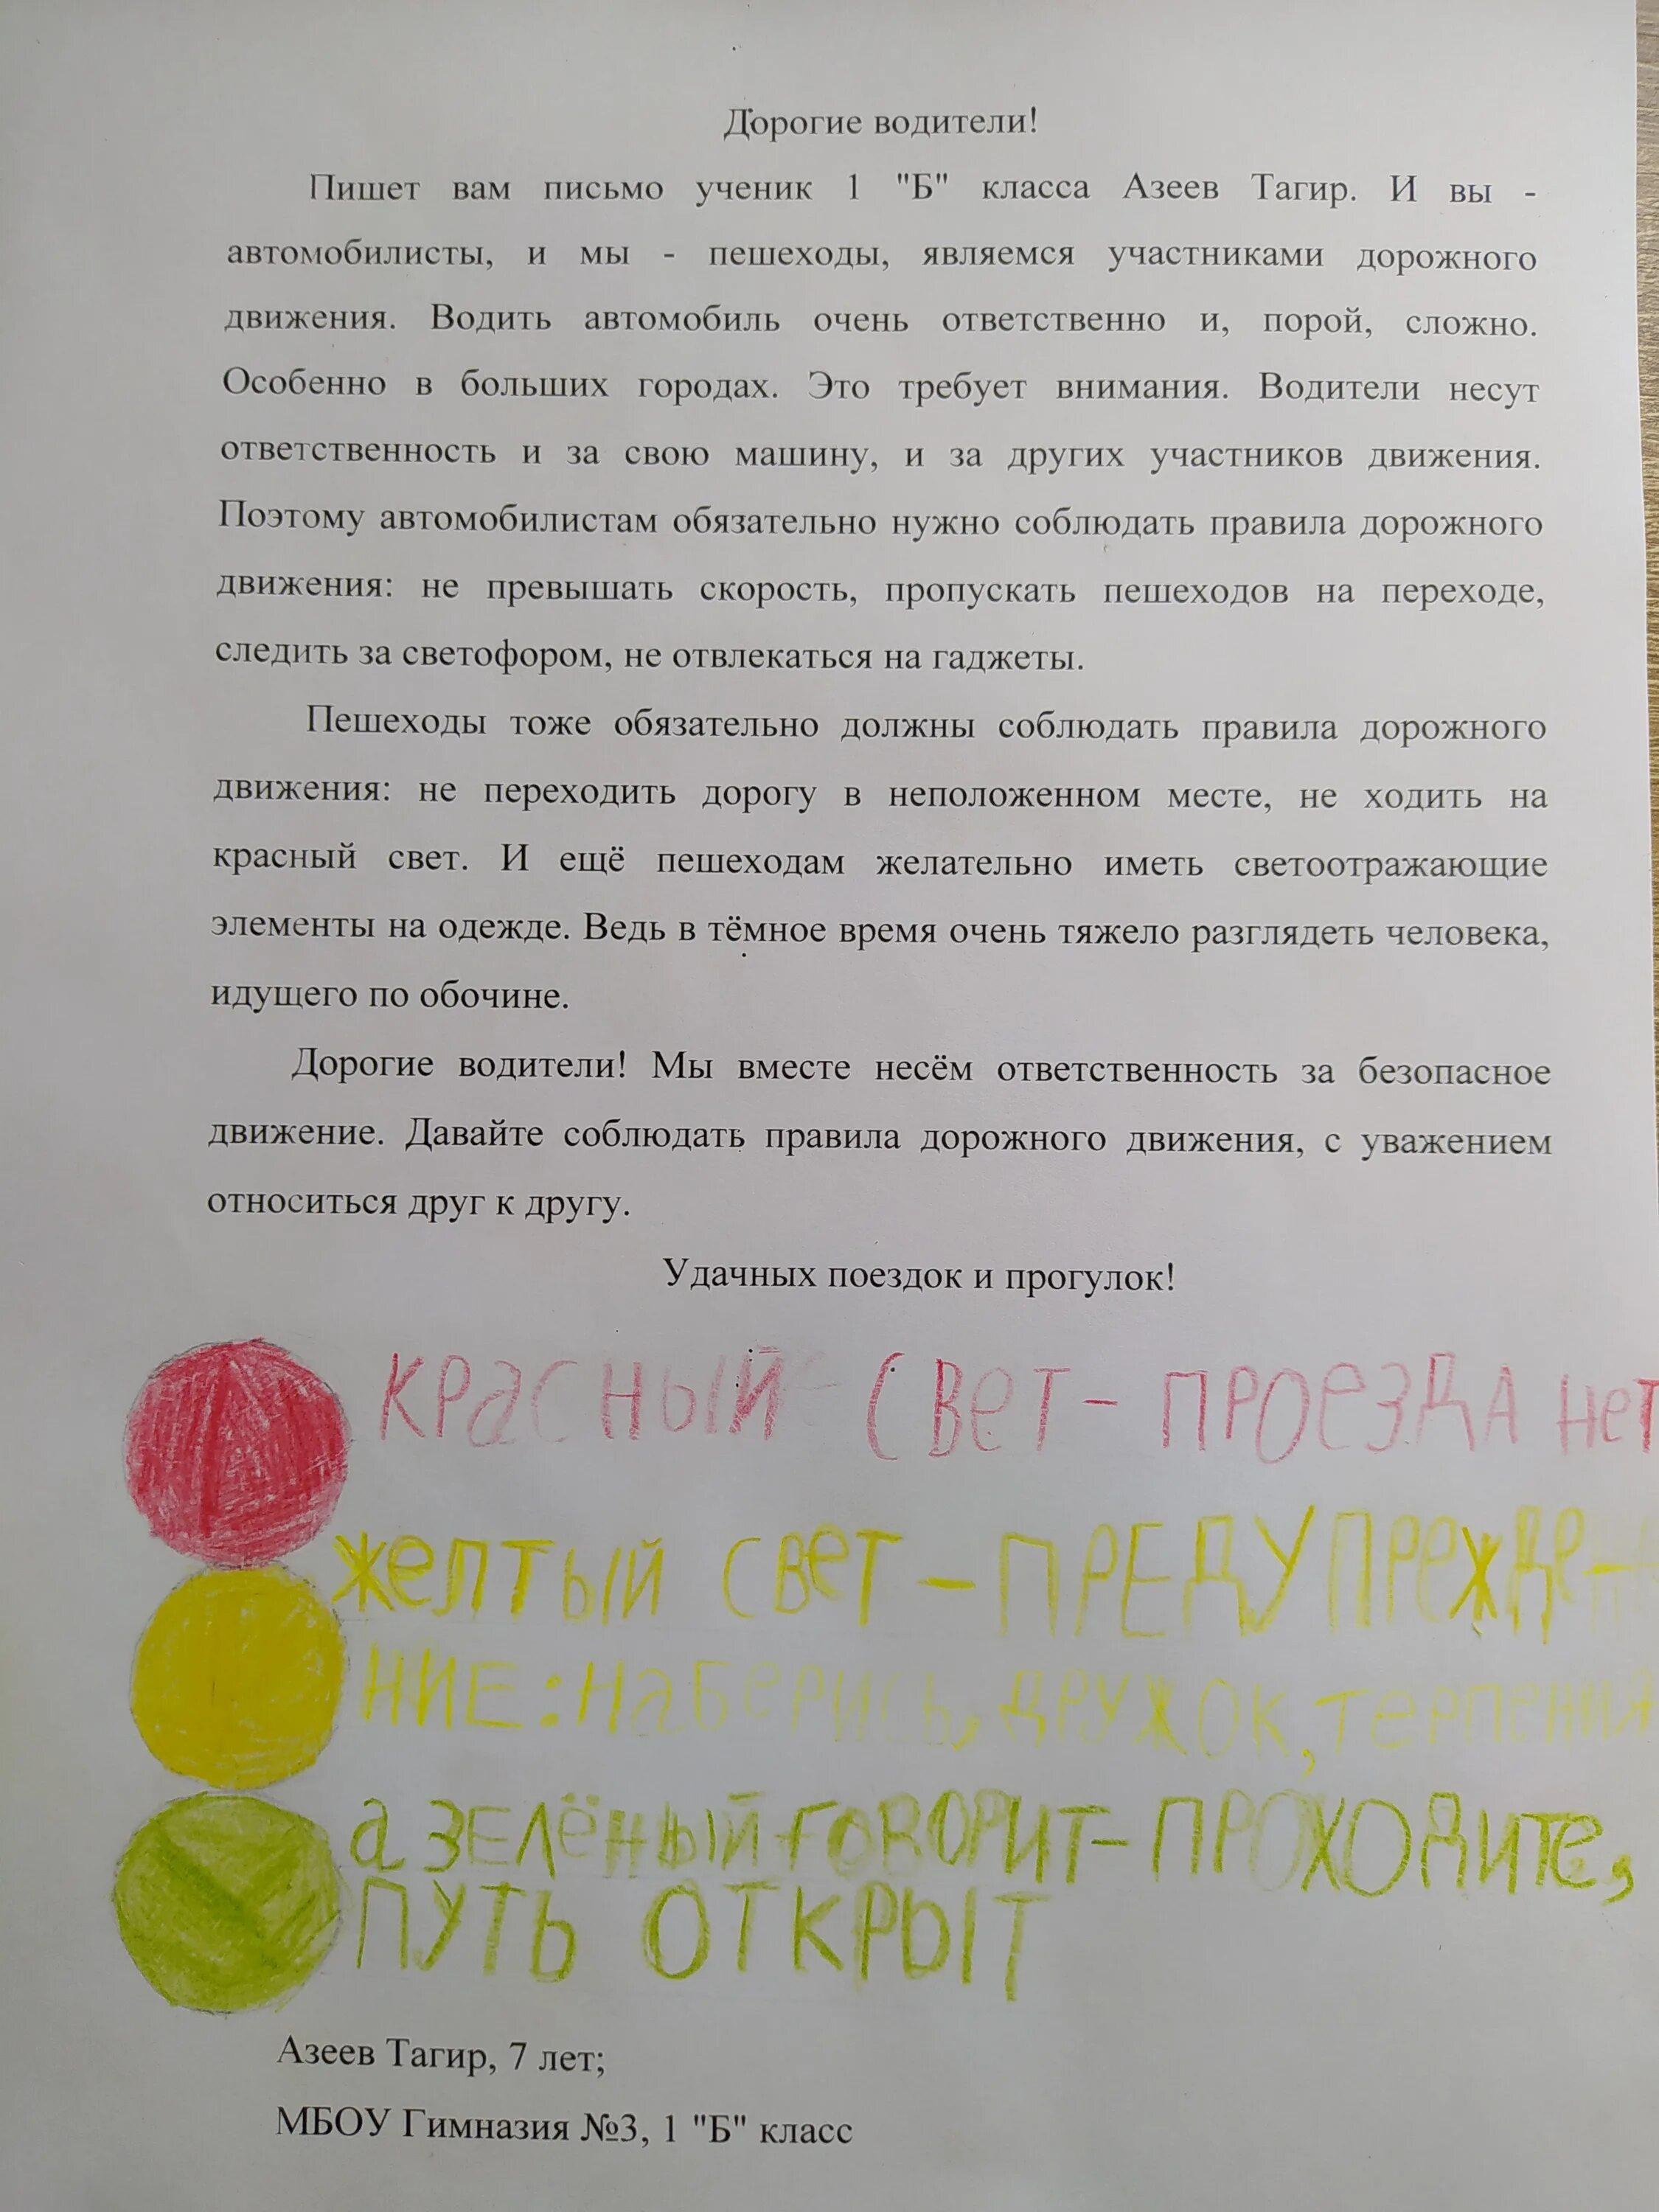 Дорогие водители!
Пишет вам письмо ученик 1 "Б" класса Азеев Тагир. И вы -
автомобилисты, и мы - пешеходы, являемся участниками дорожного
движения. Водить автомобиль очень ответственно и, порой, сложно.
Особенно в больших городах. Это требует внимания. Водители несут
ответственность и за свою машину, и за других участников движения.
Поэтому автомобилистам обязательно нужно соблюдать правила дорожного
движения: не превышать скорость, пропускать пешеходов на переходе,
следить за светофором, не отвлекаться на гаджеты.
Пешеходы тоже обязательно должны соблюдать правила дорожного
движения: не переходить дорогу в неположенном месте, не ходить на
красный свет. И ещё пешеходам желательно иметь светоотражающие
элементы на одежде. Ведь в тёмное время очень тяжело разглядеть человека,
идущего по обочине.
Дорогие водители! Мы вместе несём ответственность за безопасное
движение. Давайте соблюдать правила дорожного движения, с уважением
относиться друг к другу.
Удачных поездок и прогулок!
КРаСНЫЙ СВеТ - ПРОеЗДА НеТ
ЖеЛТЫЙ СВеТ - ПРЕДУПРеЖДе-
НИЕ: НаБеРИСЬ, ДРУЖОК, ТеРПеНИЯ
а ЗЕЛёНЫЙ ГОВОРИТ - ПРОХОДИТе,
ПУТЬ ОТКРЫТ
Азеев Тагир, 7 лет;
МБОУ Гимназия №3, 1 "Б" класс